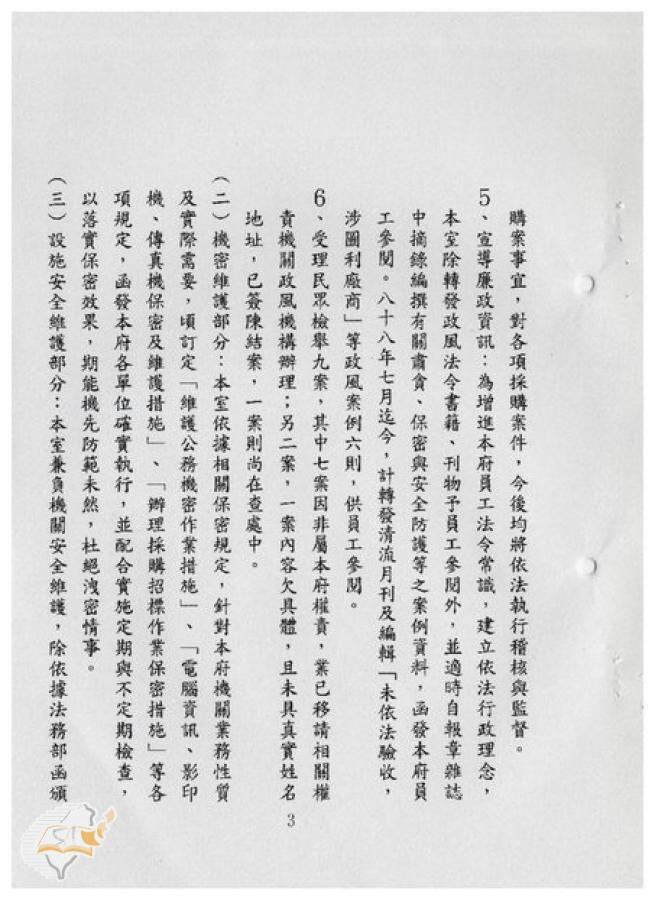 購案事宜，對各項採購案件，今後均將依法執行稽核與監督。
5、宣導廉政資訊：為增進本府員工法令常識，建立依法行政理念，
本室除轉發政風法令書籍、刊物予員工參閱外，並適時自報章雜誌
中摘錄編撰有關肅貪、保密與安全防護等之案例資料，函發本府員
工參閱。八十八年七月迄今，計轉發清流月刊及編輯「未依法驗收，
涉圖利廠商」等政風案例六則，供員工參閱。
6、受理民眾檢舉九案，其中七案因非屬本府權責，業已移請相關權
責機關政風機構辦理；另二案，一案內容欠具體，且未具真實姓名
地址，已簽陳結案，一案則尚在查處中。
（二）機密維護部分：本室依據相關保密規定，針對本府機關業務性質
及實際需要，頃訂定「維護公務機密作業措施」、「電腦資訊、影印
機、傳真機保密及維護措施」、「辦理採購招標作業保密措施」等各
項規定，函發本府各單位確實執行，並配合實施定期與不定期檢查，
以落實保密效果，期能機先防範未然，杜絕洩密情事。
（三）設施安全維護部分：本室兼負機關安全維護，除依據法務部函頒
3